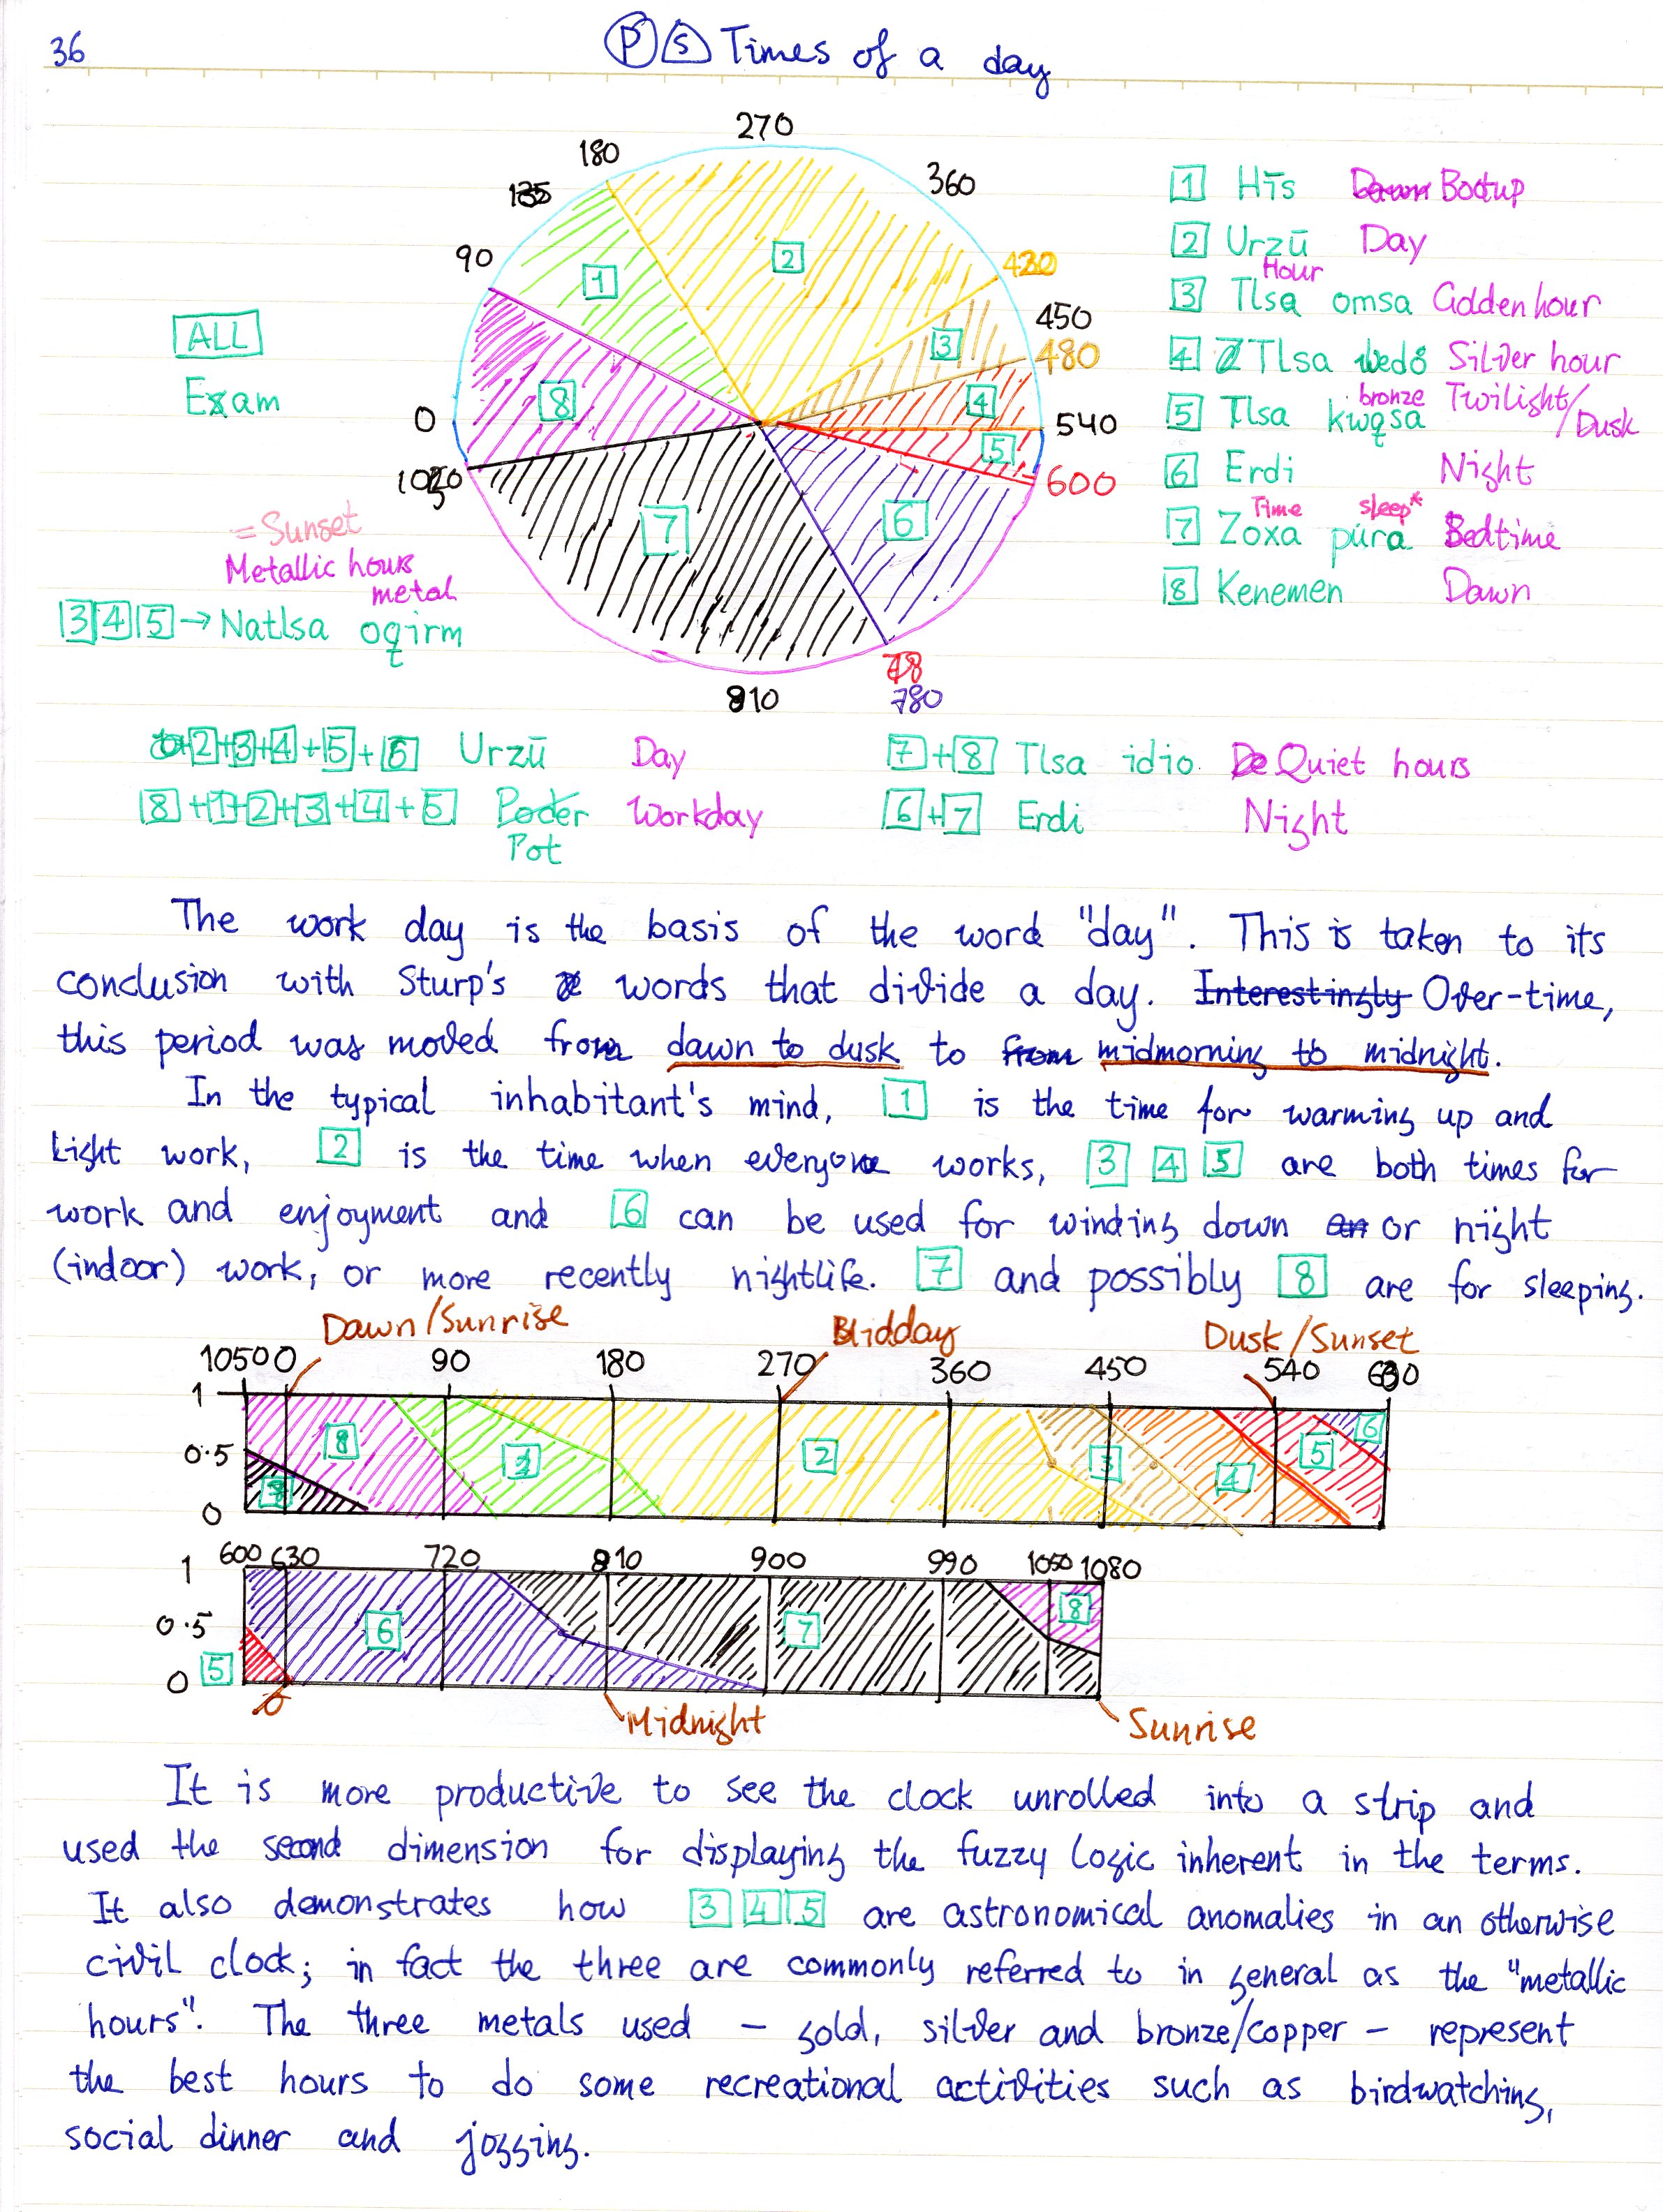 36
P S Times of a day
270
180
360
135
90
420
450
480
0
540
600
780
810
1 2 3 4 5 6 7 8
ALL
Exam
= Sunset
Metallic hours
metal
3 4 5 → Natlsa oqirm
1 Hīs Dawn Bootup
2 Urzū Day
Hour
3 Tlsa omsa Golden hour
4 Tlsa wedo Silver hour
bronze Twilight/
5 Tlsa kwqsa Dusk
6 Erdi Night
Time sleep*
7 Zoxa púra Bedtime
8 Kenemen Dawn
2+3+4+5+6 Urzū Day
7+8 Tlsa idio Quiet hours
8+1+2+3+4+5 Poder Workday
Pot
6+7 Erdi Night
The work day is the basis of the word "day". This is taken to its
conclusion with Sturp's words that divide a day. Interestingly Over-time,
this period was moved from dawn to dusk to from midmorning to midnight.
In the typical inhabitant's mind, 1 is the time for warming up and
light work, 2 is the time when everyone works, 3 4 5 are both times for
work and enjoyment and 6 can be used for winding down an or night
(indoor) work, or more recently nightlife. 7 and possibly 8 are for sleeping.
Dawn/Sunrise Midday Dusk/Sunset
1050 0 90 180 270 360 450 540 630
1
0.5
0
8 2 3 4 5 6
600 630 720 810 900 990 1050 1080
1
0.5
0
5 6 7 8
Midnight Sunrise
It is more productive to see the clock unrolled into a strip and
used the second dimension for displaying the fuzzy logic inherent in the terms.
It also demonstrates how 3 4 5 are astronomical anomalies in an otherwise
civil clock; in fact the three are commonly referred to in general as the "metallic
hours". The three metals used – gold, silver and bronze/copper – represent
the best hours to do some recreational activities such as birdwatching,
social dinner and jogging.